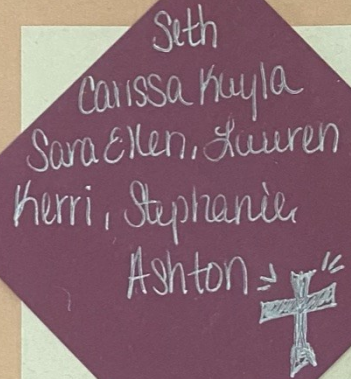 Seth
Carissa Kayla
Sara Ellen, Lauren
Kerri, Stephanie,
Ashton